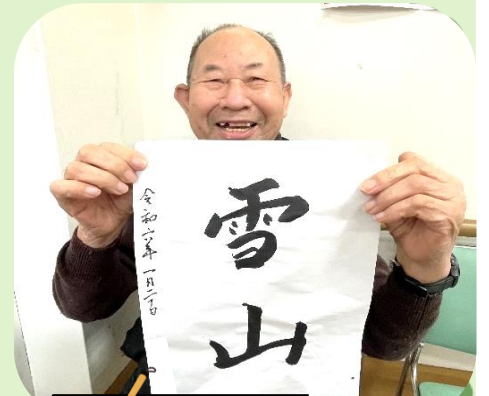 雪山
令和六年一月二日